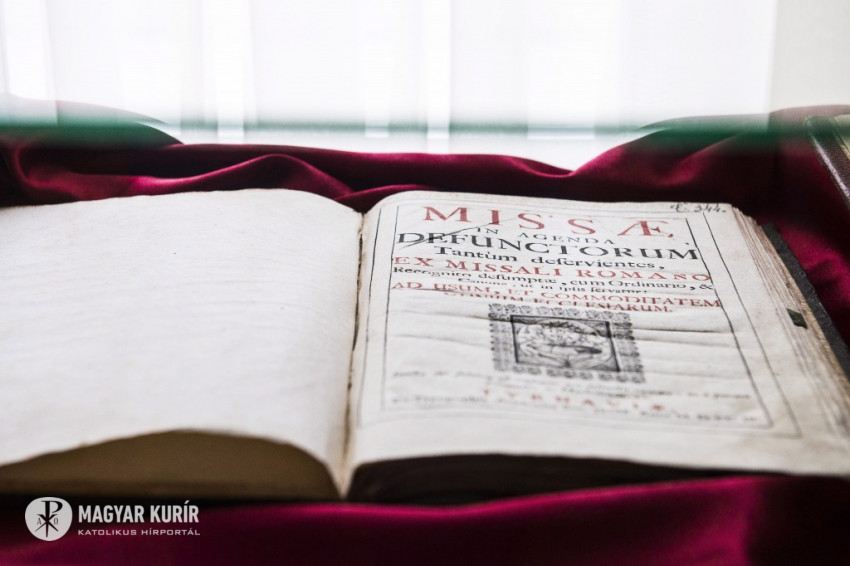 C. 344.
MISSÆ
IN AGENDA
DEFUNCTORUM
Tantùm deservientes,
EX MISSALI ROMANO
Recognito desumptæ, cum Ordinario, &
Canone, ut in ipsis servatur;
AD USUM, ET COMMODITATEM
ECCLESIARUM.
TYRNAVIÆ
MAGYAR KURÍR
KATOLIKUS HÍRPORTÁL